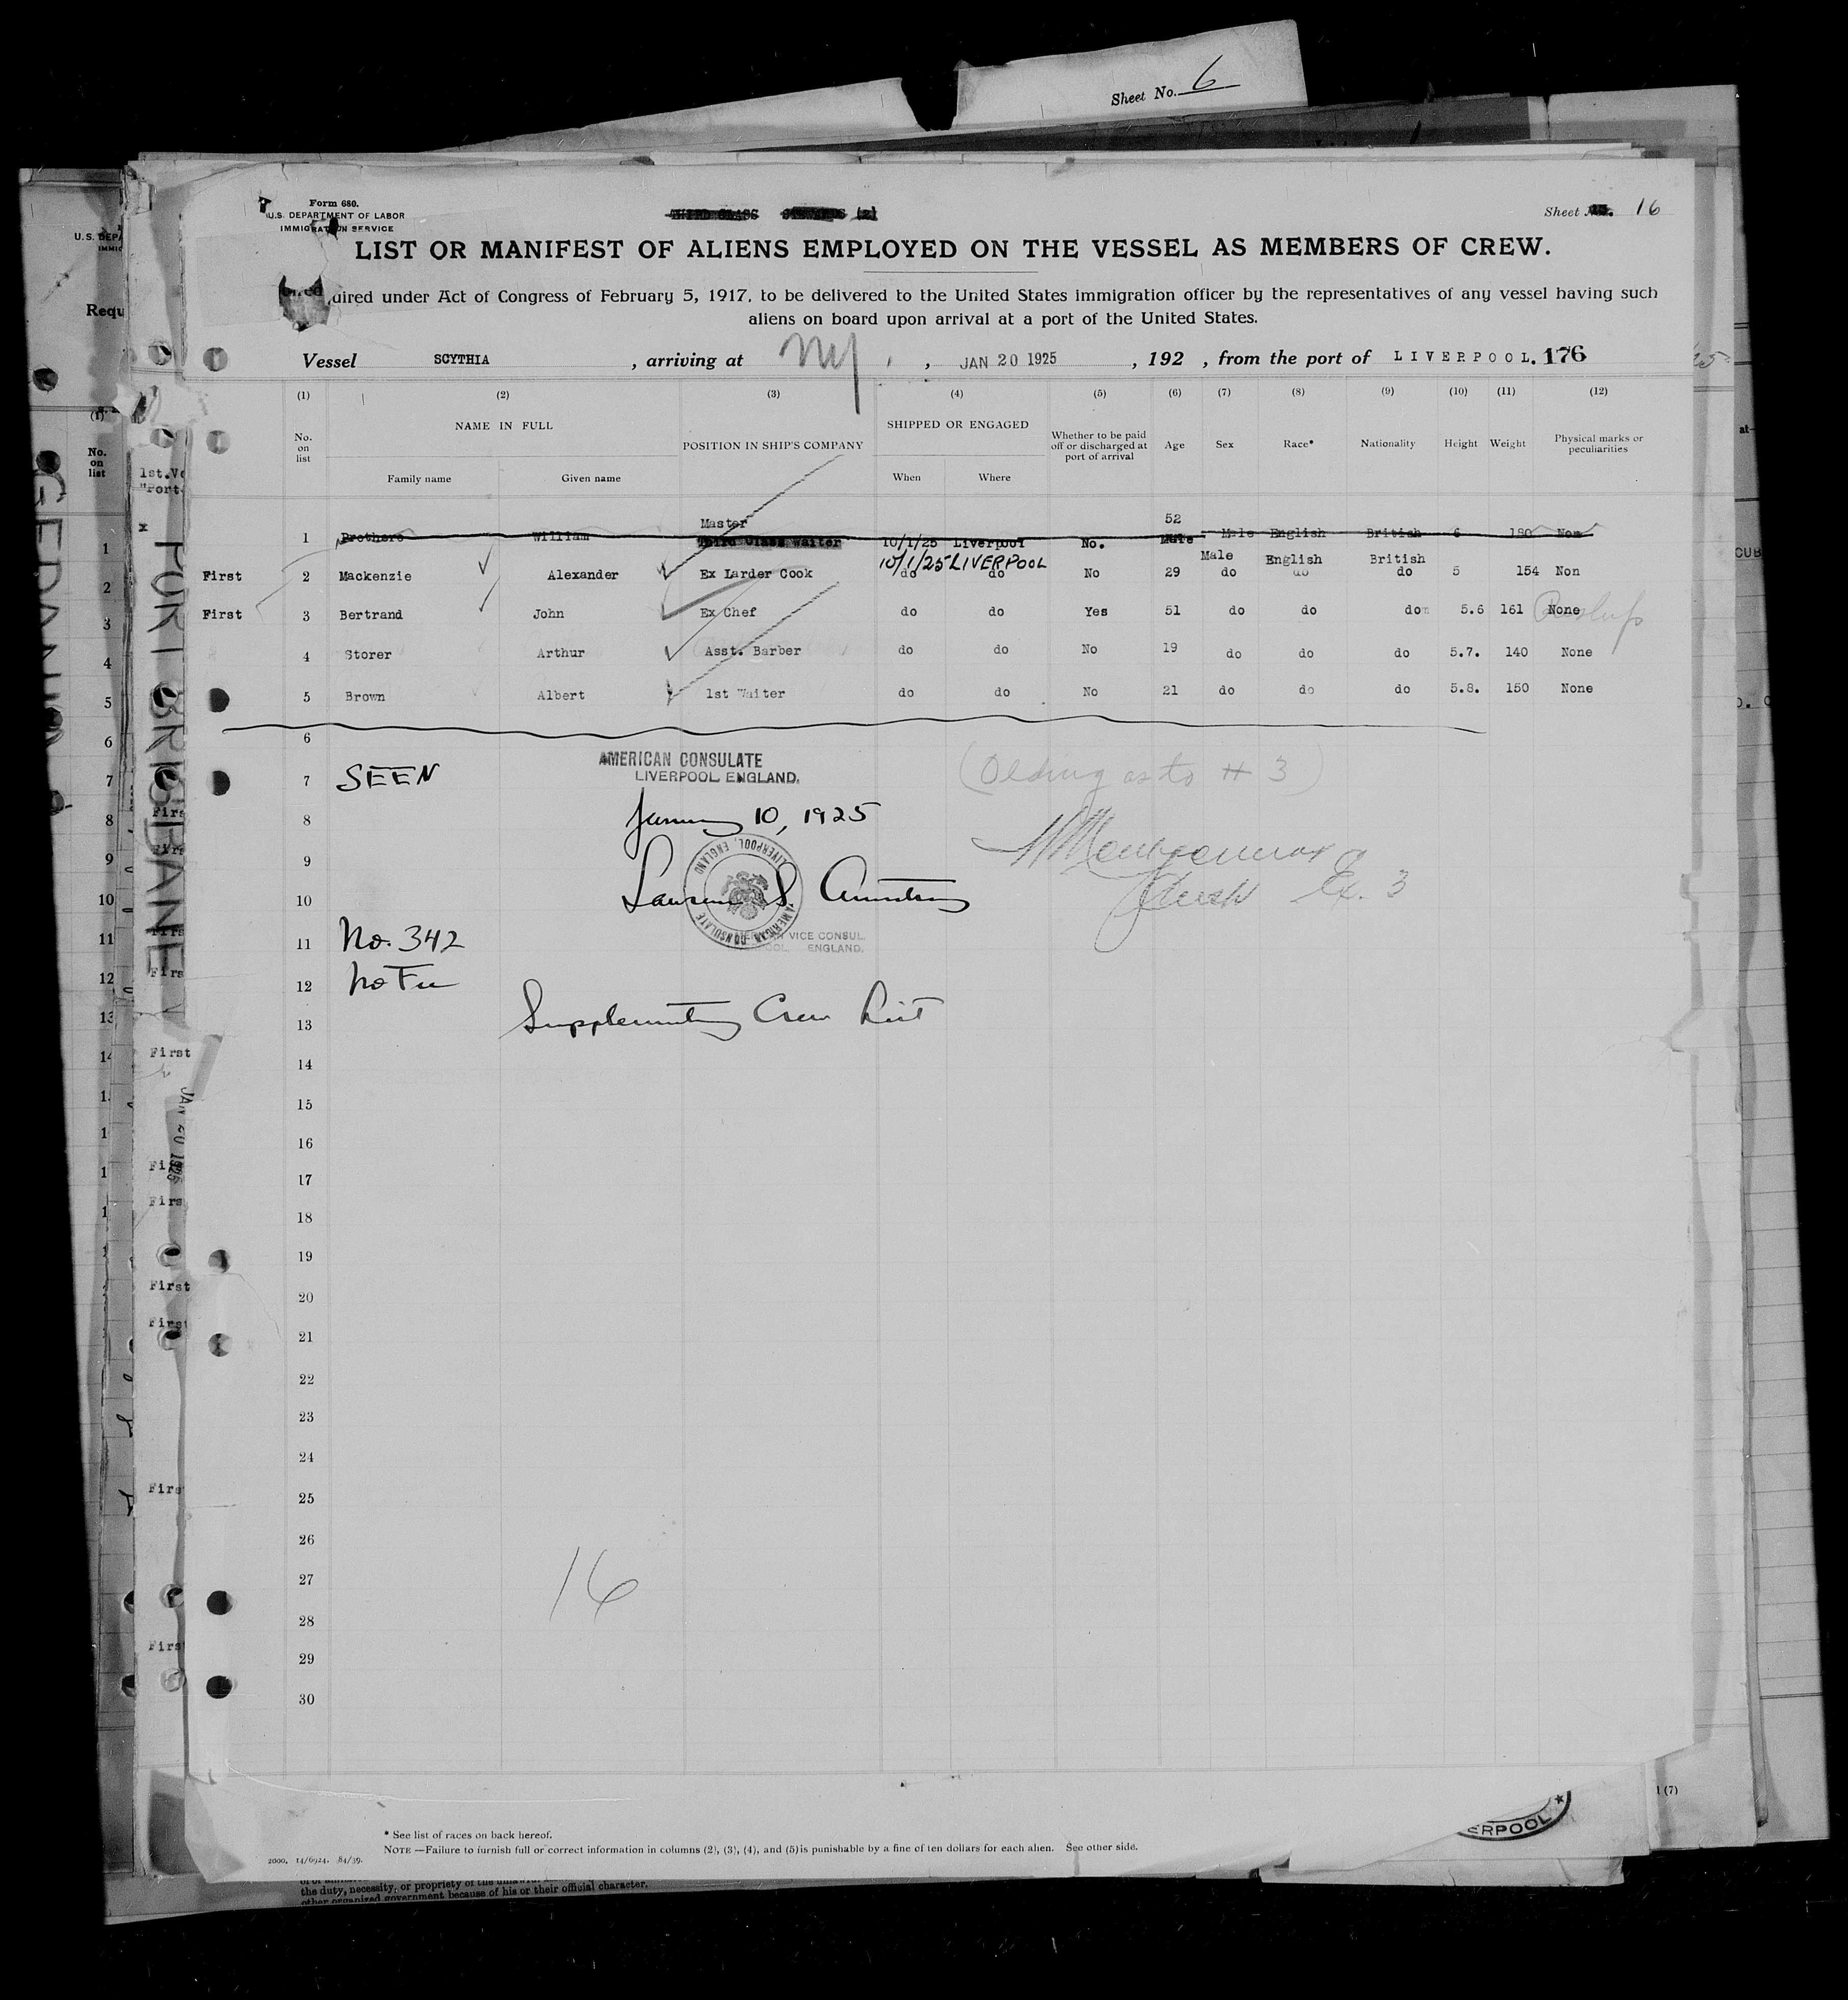 Sheet No. 6
Form 680.
U.S. DEPARTMENT OF LABOR
IMMIGRATION SERVICE
THIRD CLASS
Sheet No. 16
LIST OR MANIFEST OF ALIENS EMPLOYED ON THE VESSEL AS MEMBERS OF CREW.
uired under Act of Congress of February 5, 1917, to be delivered to the United States immigration officer by the representatives of any vessel having such
aliens on board upon arrival at a port of the United States.
Vessel SCYTHIA , arriving at NY , JAN 20 1925 , 192 , from the port of LIVERPOOL. 176
(1) (2) (3) (4) (5) (6) (7) (8) (9) (10) (11) (12)
No. on list NAME IN FULL POSITION IN SHIP'S COMPANY SHIPPED OR ENGAGED Whether to be paid off or discharged at port of arrival Age Sex Race* Nationality Height Weight Physical marks or peculiarities
Family name Given name When Where
Master 52
1 Brothers William Third Class Waiter 10/1/25 Liverpool No. Male Male English British 6 180 Non
10/1/25 LIVERPOOL Male English British
First 2 Mackenzie Alexander Ex Larder Cook do do No 29 do do do 5 154 Non
First 3 Bertrand John Ex Chef do do Yes 51 do do do 5.6 161 None
4 Storer Arthur Asst. Barber do do No 19 do do do 5.7. 140 None
5 Brown Albert 1st Waiter do do No 21 do do do 5.8. 150 None
6
7 SEEN
AMERICAN CONSULATE
LIVERPOOL ENGLAND.
as to # 3
8 January 10, 1925
9
10
11 No. 342
VICE CONSUL
ENGLAND.
12 No Fee
13 Supplementary Crew List
14
15
16
17
18
19
20
21
22
23
24
25
26
27
16
28
29
30
* See list of races on back hereof.
NOTE —Failure to furnish full or correct information in columns (2), (3), (4), and (5) is punishable by a fine of ten dollars for each alien. See other side.
2000. 14/6924. 84/39.
the duty, necessity, or propriety of the
other organized government because of his or their official character.
ERPOOL
PORT BRISBANE
JAN 20 1925